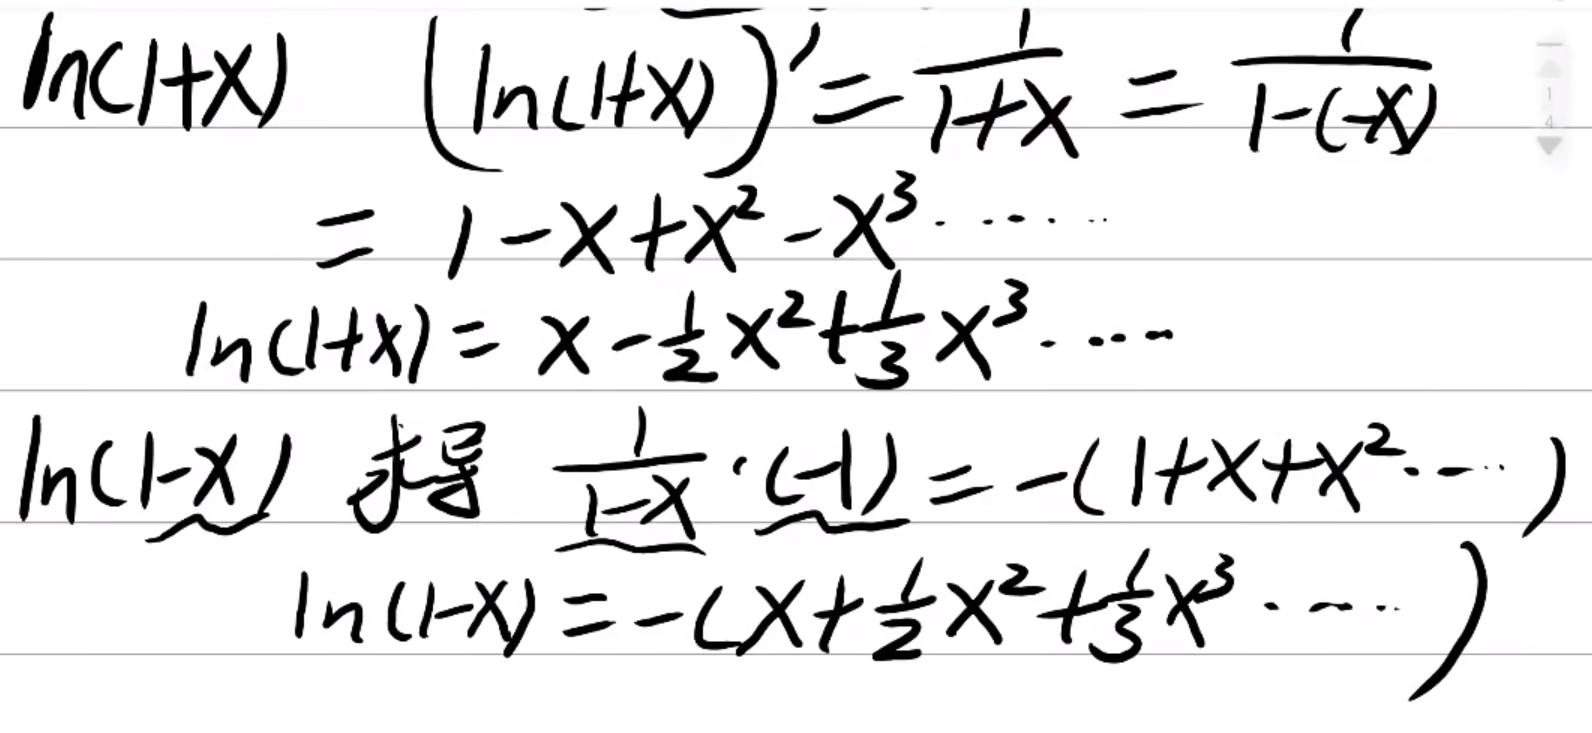 ln(1+x) (ln(1+x))' = 1/(1+x) = 1/(1-(-x))
= 1-x+x²-x³······
ln(1+x) = x-1/2x²+1/3x³·····
ln(1-x) 求导 1/(1-x)·(-1) = -(1+x+x²·····)
ln(1-x) = -(x+1/2x²+1/3x³·····)